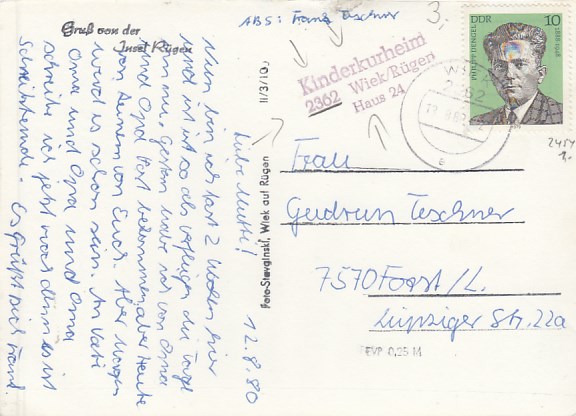 ABS: Franz Teschner
3,-
Gruß von der
Insel Rügen
Kinderkurheim
2362 Wiek/Rügen
Haus 24
DDR 10
PHILIPP DENGEL 1888-1948
2362
Liebe Mutti!
12.8.80
Nun bin ich fast 2 Wochen hier
und ist so als verfliegen die Tage
nur. Gestern habe ich von Oma
und Opa Post bekommen, aber heute
von Euch. Aber Morgen
wird es schon sein. An Vati
Oma und Opa und Oma
schreibe ich jetzt noch denn es ist
Schreibstunde. Es grüßt Dich Franz
II/3/10
Foto-Stavginski, Wiek auf Rügen
Frau
Gudrun Teschner
7570 Forst/L.
Leipziger Str. 22a
EVP 0,25 M
2454
1,-